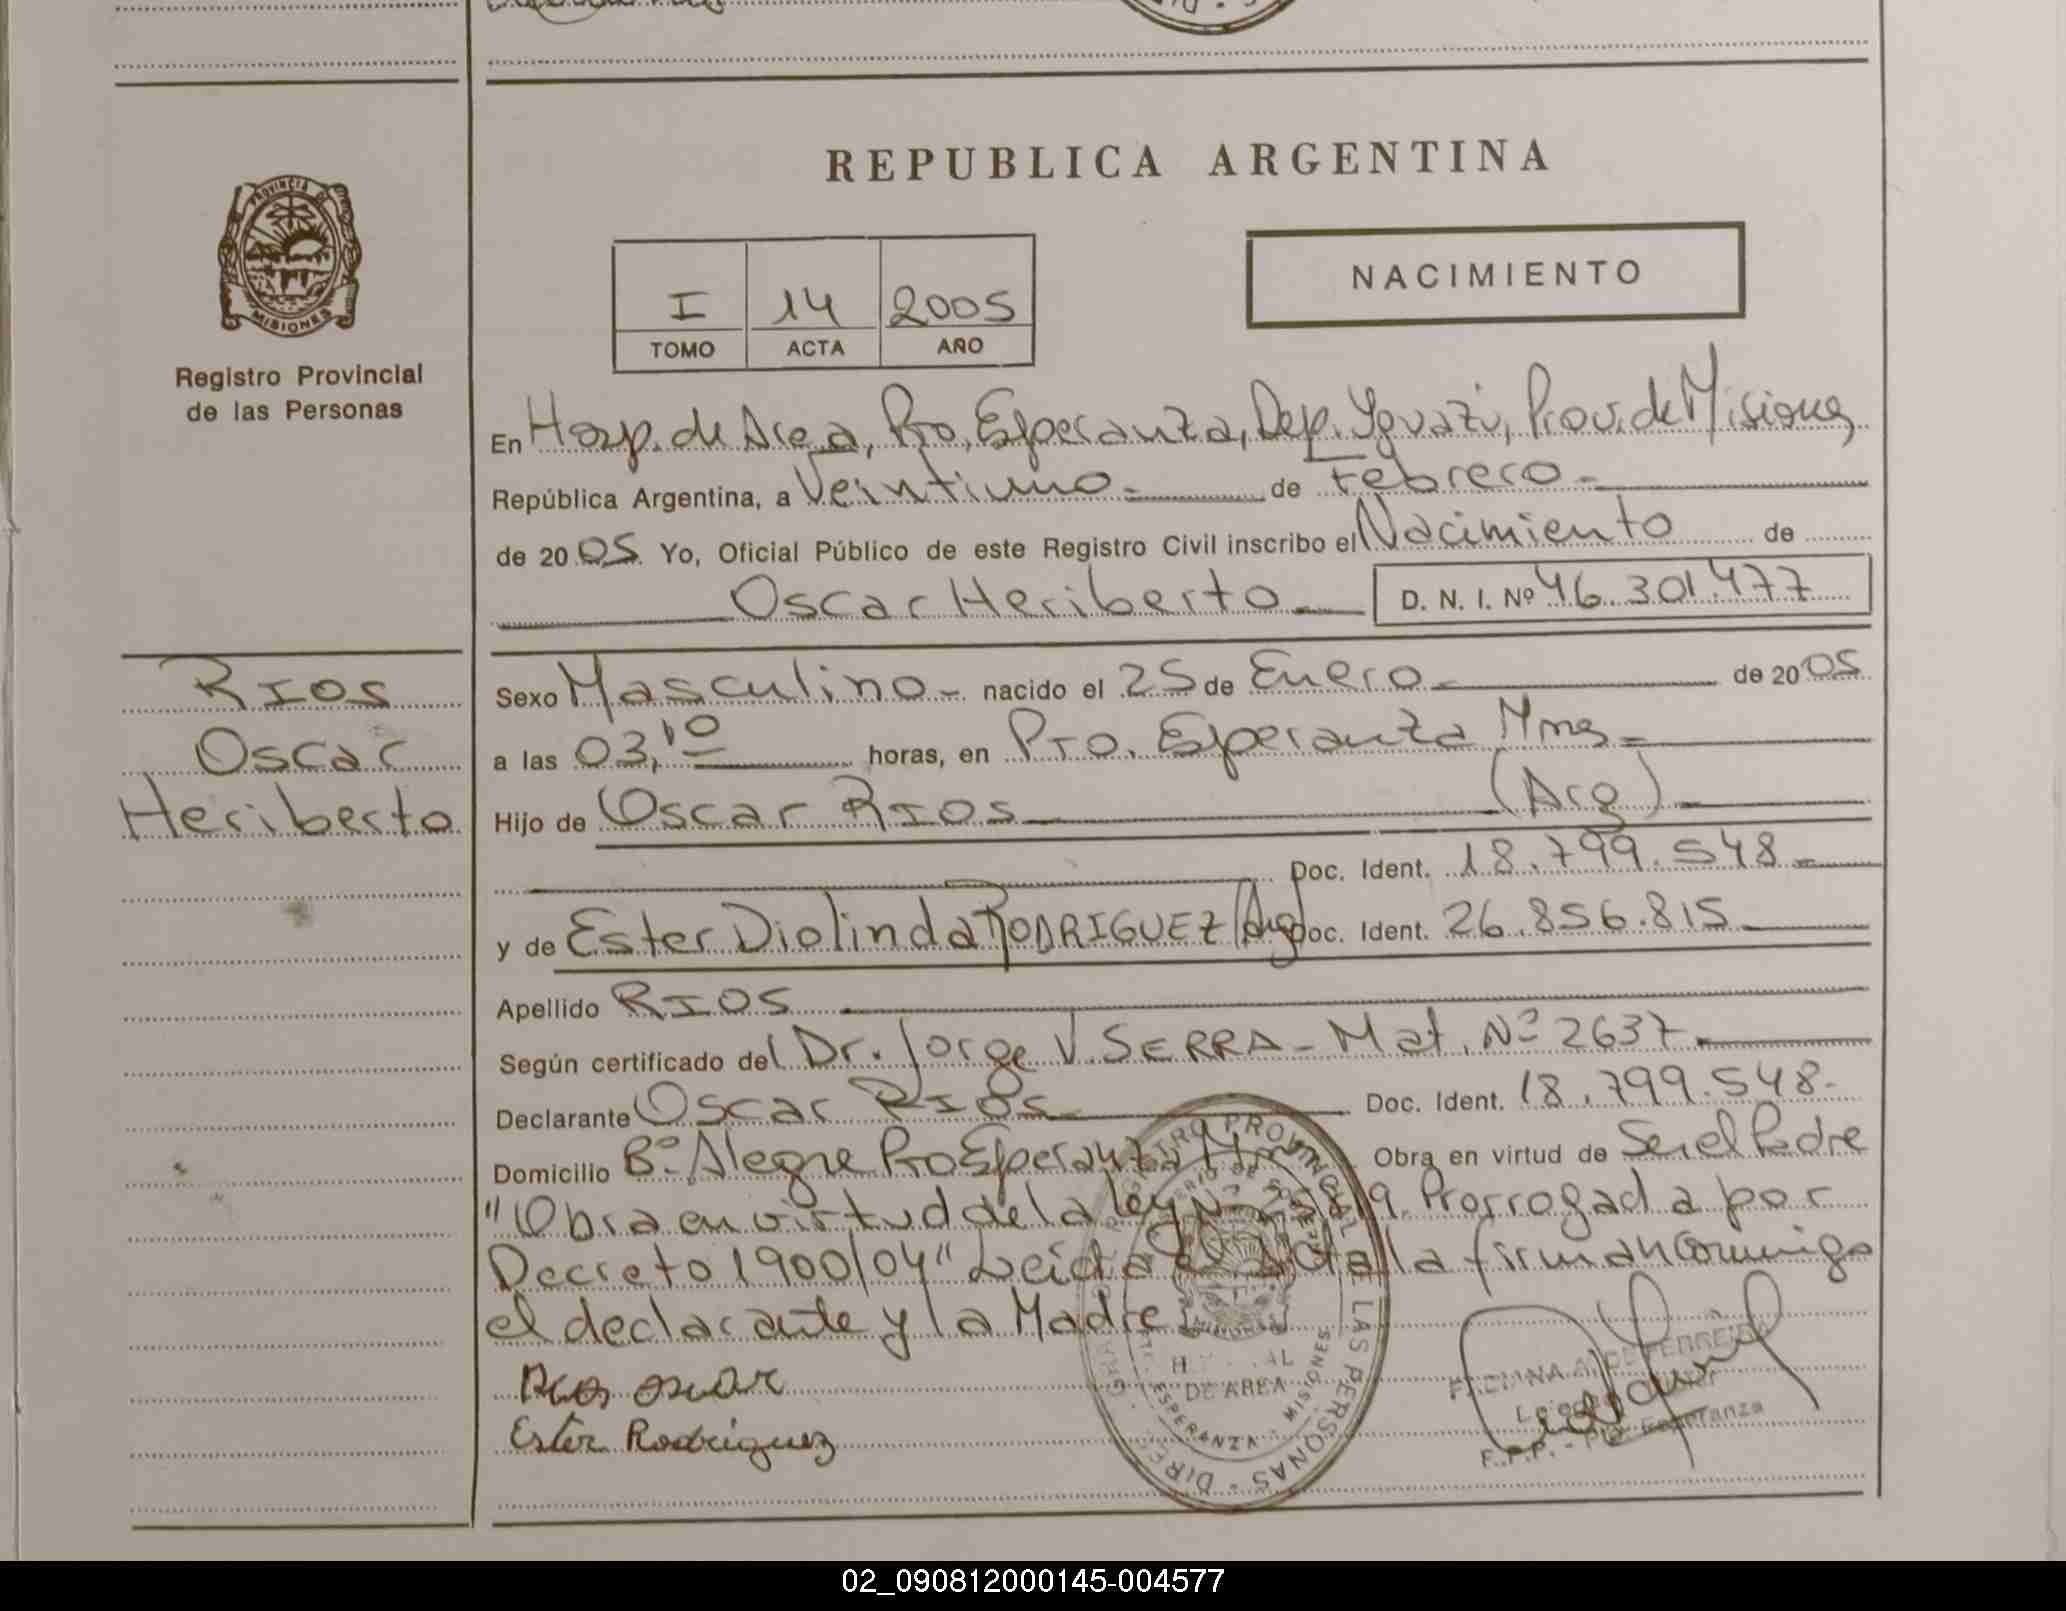 REPUBLICA ARGENTINA
PROVINCIA DE
MISIONES
Registro Provincial
de las Personas
I 14 2005
TOMO ACTA AÑO
NACIMIENTO
En Hosp. de Area, Pto. Esperanza, Dep. Iguazú, Prov. de Misiones
República Argentina, a Veintiuno.- de Febrero.-
de 2005. Yo, Oficial Público de este Registro Civil inscribo el Nacimiento de
Oscar Heriberto D. N. I. Nº 46.301.477
RIOS
Oscar
Heriberto
Sexo Masculino.- nacido el 25 de Enero.- de 2005
a las 03,10 horas, en Pto. Esperanza Mnes.-
Hijo de Oscar RIOS (Arg)
Doc. Ident. 18.799.548.-
y de Ester Diolinda RODRIGUEZ (Arg) Doc. Ident. 26.856.815
Apellido RIOS
Según certificado del Dr. Jorge V. SERRA - Mat. Nº 2637.
Declarante Oscar RIOS Doc. Ident. 18.799.548.-
Domicilio Bº. Alegre Pto Esperanza Mnes Obra en virtud de Ser el Padre
"Obra en virtud de la ley Nº 25819. Prorrogada por
Decreto 1900/04" Leída el Acta la firman conmigo
el declarante y la Madre
Rios oscar
Ester Rodriguez
REGISTRO PROVINCIAL DE LAS PERSONAS
DE AREA
ESPERANZA - MISIONES
02_090812000145-004577